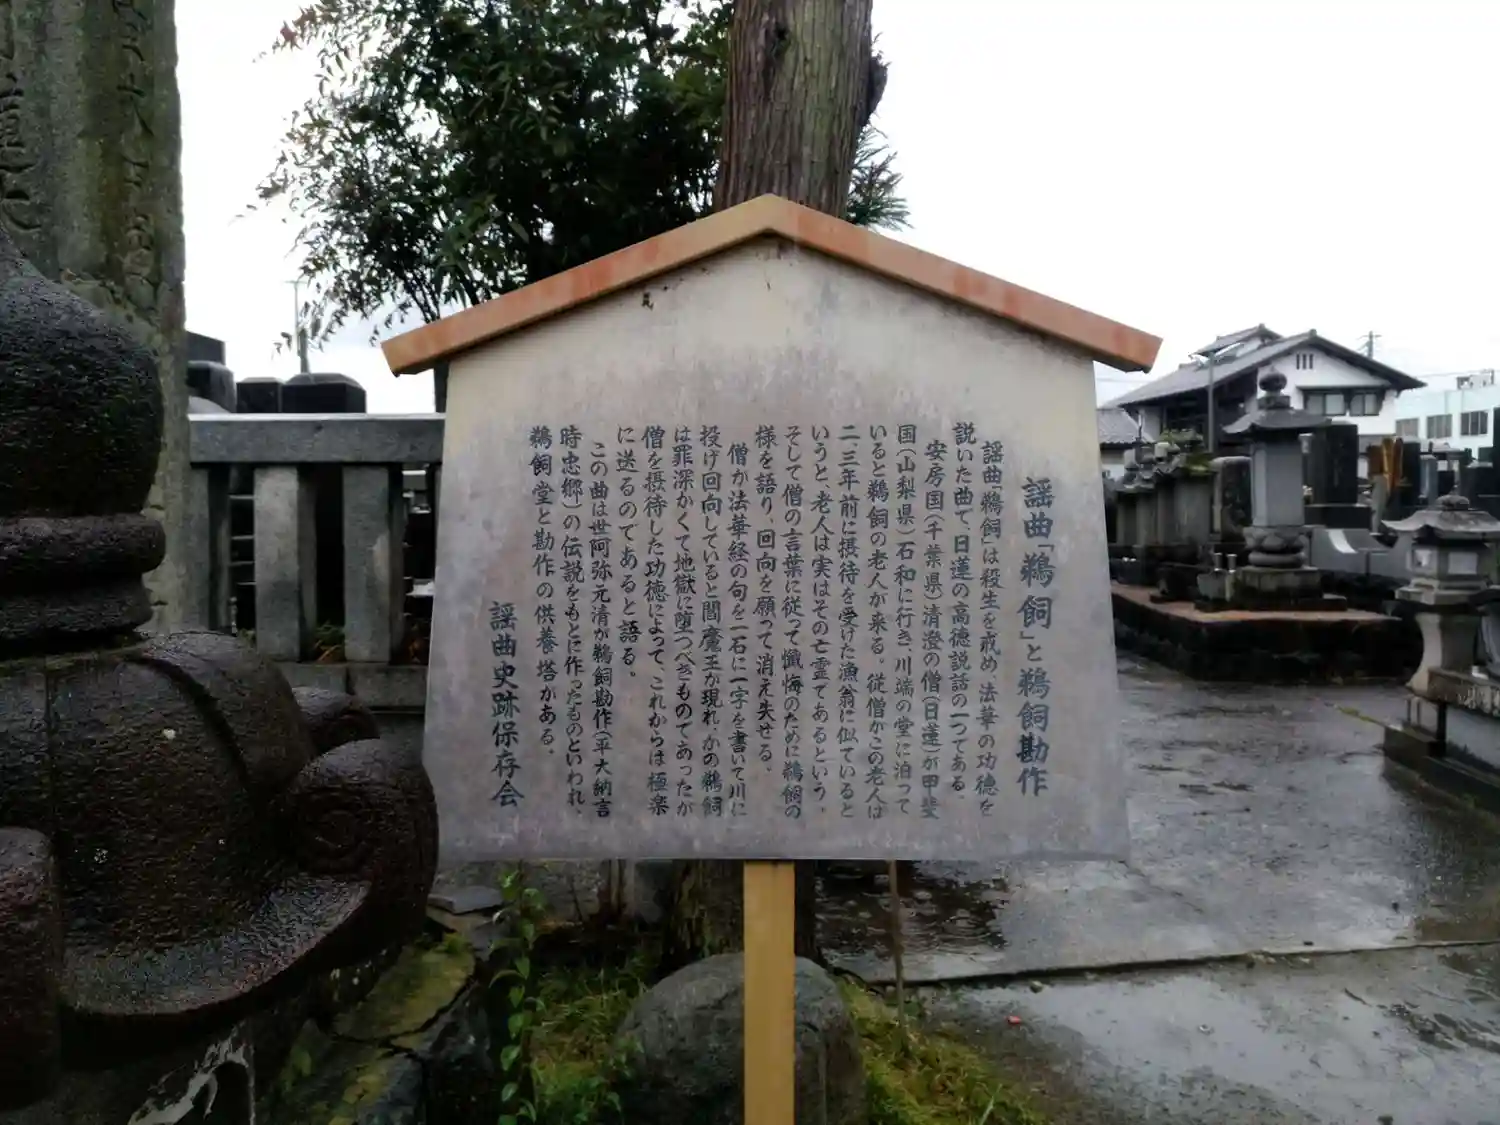 謡曲「鵜飼」と鵜飼勘作
謡曲「鵜飼」は殺生を戒め、法華の功徳を
説いた曲で、日蓮の高徳説話の一つである。
安房国(千葉県)清澄の僧(日蓮)が甲斐
国(山梨県)石和に行き、川端の堂に泊って
いると鵜飼の老人が来る。従僧がこの老人は
二、三年前に摂待を受けた漁翁に似ていると
いうと、老人は実はその亡霊であるという。
そして僧の言葉に従って懺悔のために鵜飼の
様を語り、回向を願って消え失せる。
僧が法華経の句を一石に一字を書いて川に
投げ回向していると閻魔王が現れ、かの鵜飼
は罪深かくて地獄に堕つべきものであったが
僧を摂待した功徳によって、これからは極楽
に送るのであると語る。
この曲は世阿弥元清が鵜飼勘作(平大納言
時忠郷)の伝説をもとに作ったものといわれ、
鵜飼堂と勘作の供養塔がある。
謡曲史跡保存会